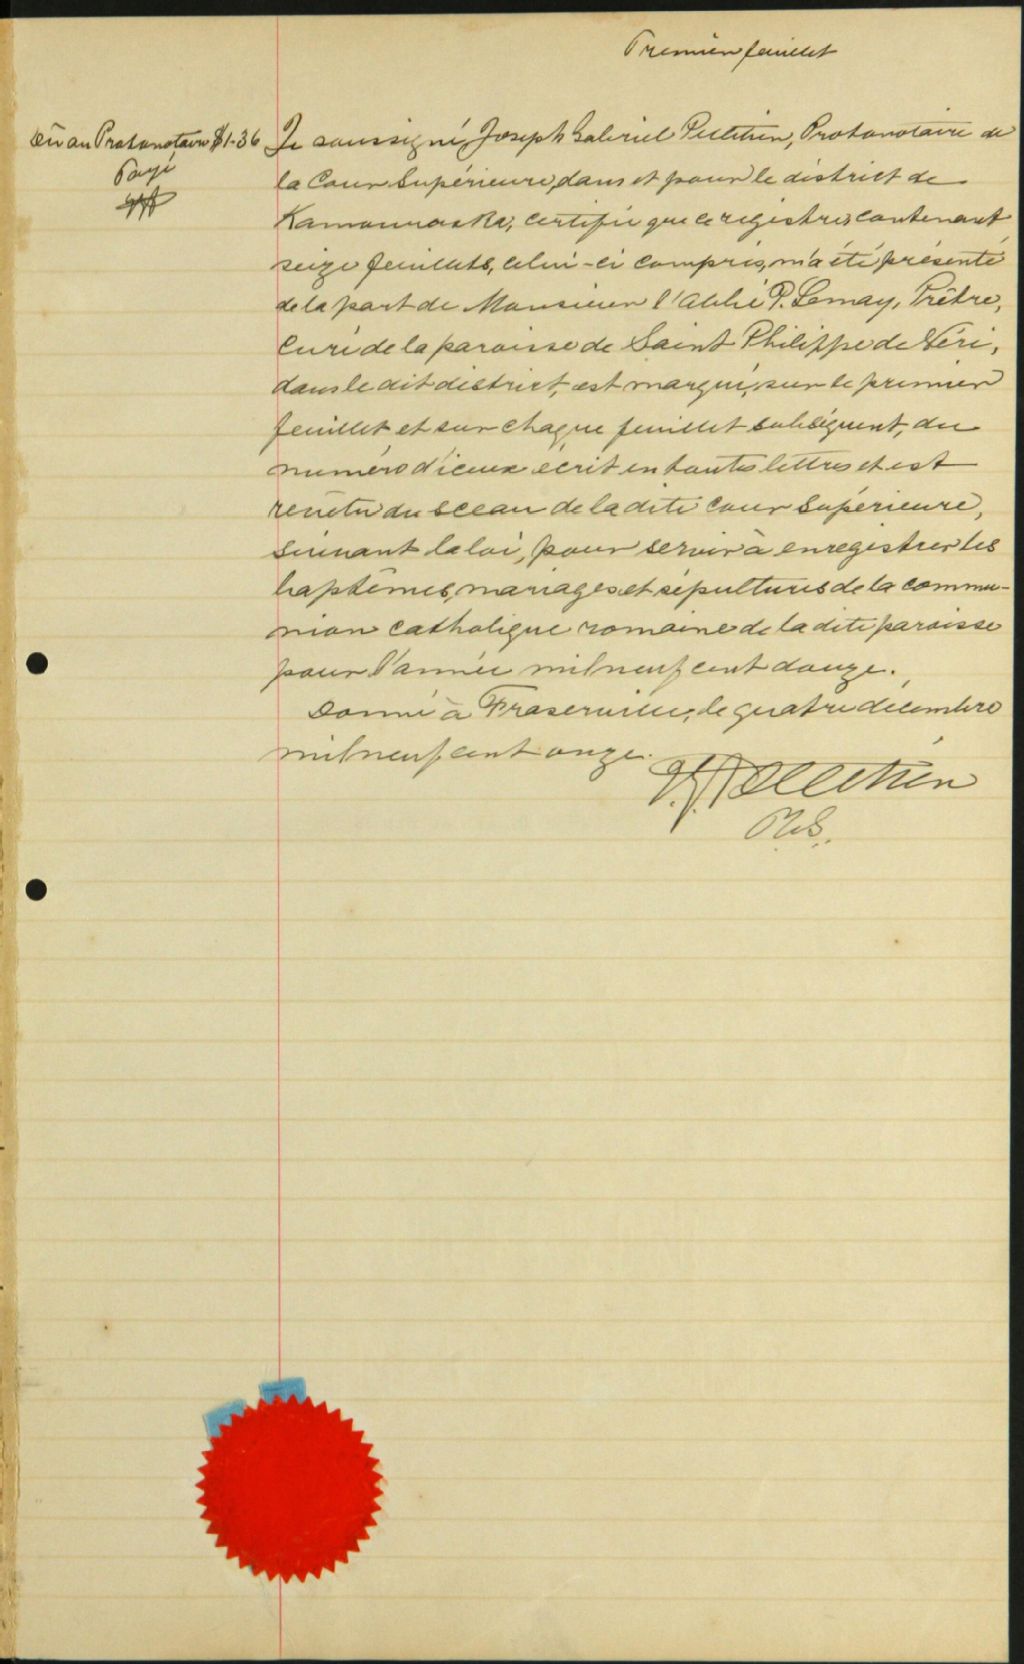 Premier feuillet
Dû au Protonotaire $1-36
Payé
Je soussigné, Joseph Gabriel Pelletier, Protonotaire de
la Cour Supérieure, dans et pour le district de
Kamouraska, certifie que ce registre, contenant
seize feuillets, celui-ci compris, m'a été présenté
de la part de Monsieur l'abbé P. Lemay, Prêtre,
Curé de la paroisse de Saint Philippe de Néri,
dans le dit district, est marqué, sur le premier
feuillet et sur chaque feuillet subséquent, du
numéro d'iceux écrit en toutes lettres et est
revêtu du sceau de la dite Cour Supérieure,
suivant la loi, pour servir à enregistrer les
baptêmes, mariages et sépultures de la commu-
nion catholique romaine de la dite paroisse
pour l'année mil neuf cent douze.
Donné à Fraserville, le quatre décembre
mil neuf cent onze.
J.G. Pelletier
P.C.S.